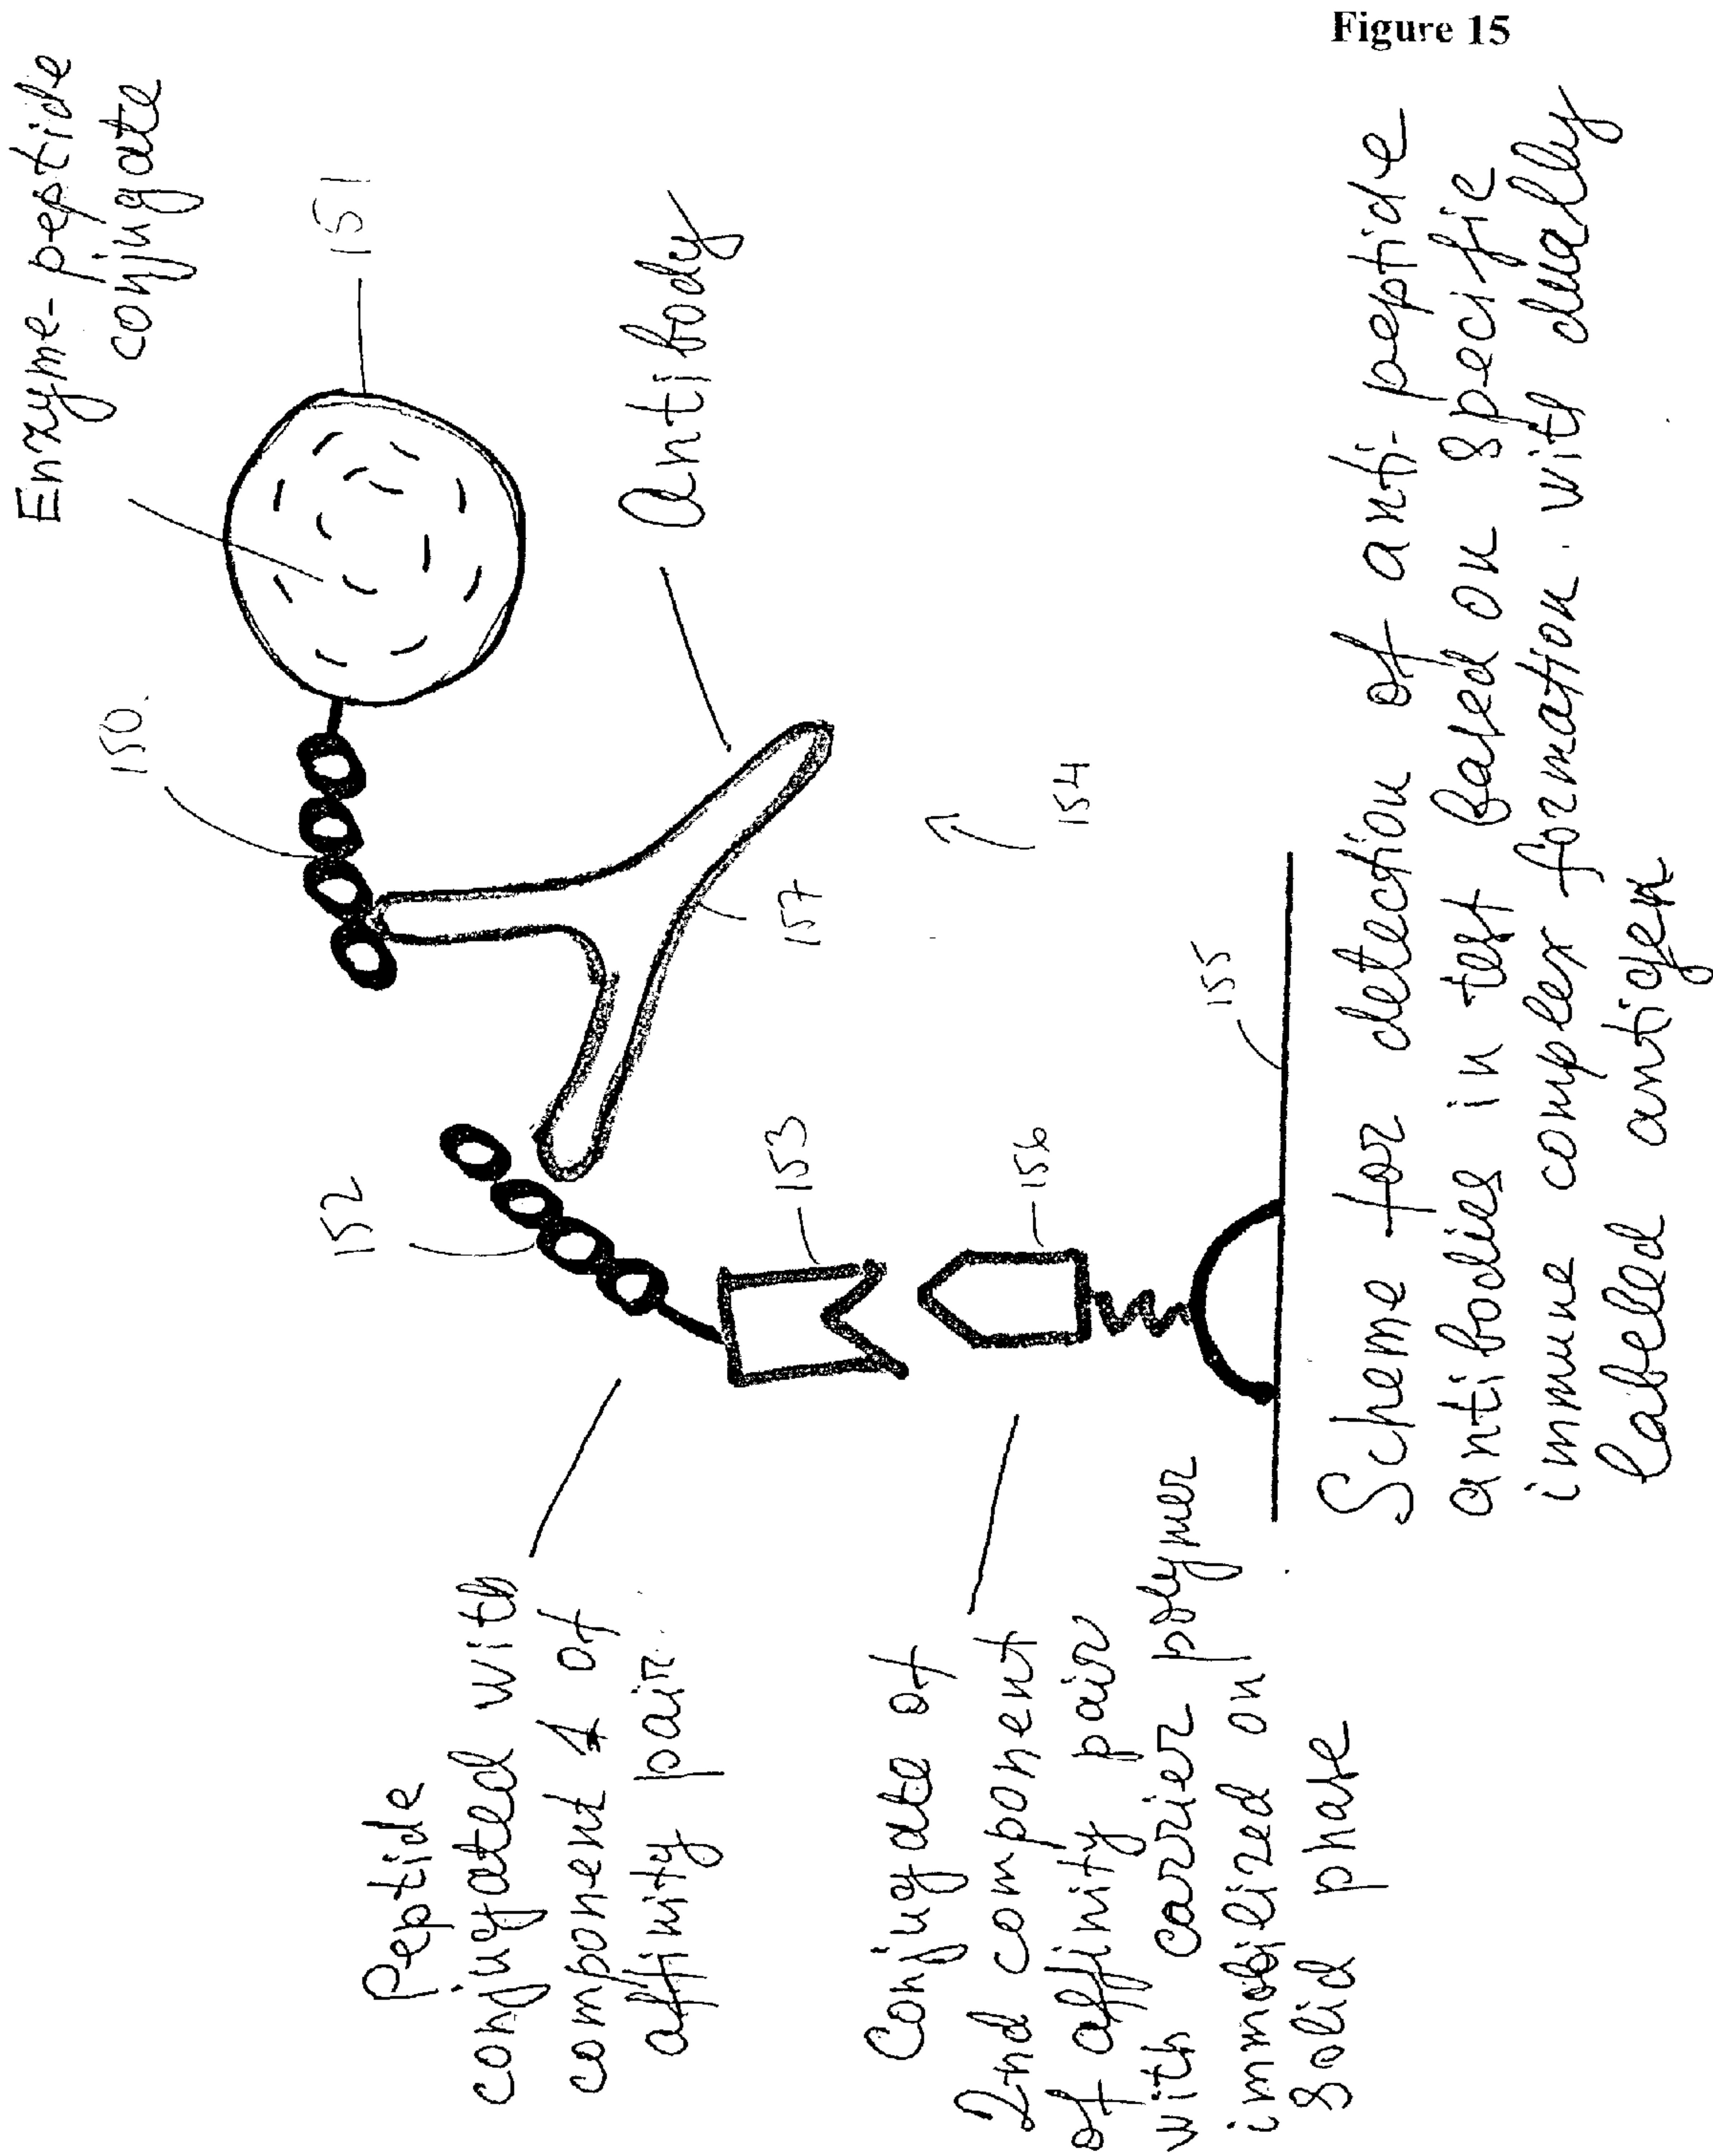 Figure 15
Enzyme-peptide
conjugate
150
151
Antibody
152
157
154
153
155
156
Peptide
conjugated with
component 1 of
affinity pair
Conjugate of
2nd component
of affinity pair
with carrier polymer
immobilized on
solid phase
Scheme for detection of anti-peptide
antibodies in test based on specific
immune complex formation with dually
labelled antigen